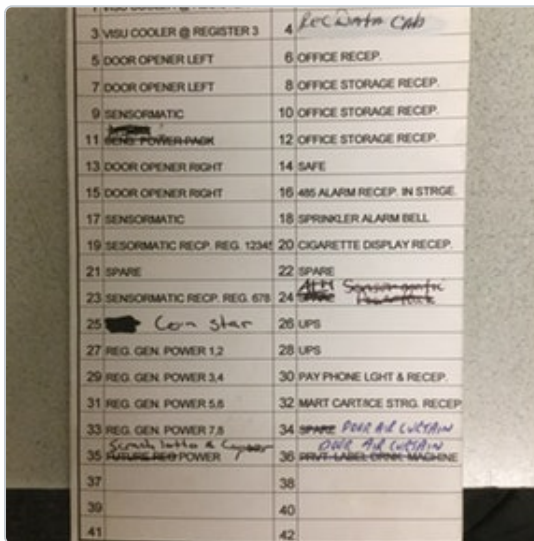 3 VISU COOLER @ REGISTER 3 4 REC DATA CAB
5 DOOR OPENER LEFT 6 OFFICE RECEP.
7 DOOR OPENER LEFT 8 OFFICE STORAGE RECEP.
9 SENSORMATIC 10 OFFICE STORAGE RECEP.
11 SENS. POWER PACK 12 OFFICE STORAGE RECEP.
13 DOOR OPENER RIGHT 14 SAFE
15 DOOR OPENER RIGHT 16 485 ALARM RECEP. IN STRGE.
17 SENSORMATIC 18 SPRINKLER ALARM BELL
19 SESORMATIC RECP. REG. 12345 20 CIGARETTE DISPLAY RECEP.
21 SPARE 22 SPARE
ATM Sensormatic
23 SENSORMATIC RECP. REG. 678 24 SPARE Power Pack
25 Coin Star 26 UPS
27 REG. GEN. POWER 1,2 28 UPS
29 REG. GEN. POWER 3,4 30 PAY PHONE LGHT & RECEP.
31 REG. GEN. POWER 5,6 32 MART CART/ICE STRG. RECEP
33 REG. GEN. POWER 7,8 34 SPARE DOOR AIR CURTAIN
Scratch lotto & DOOR AIR CURTAIN
35 FUTURE REG POWER 36 PRVT. LABEL DRNK. MACHINE
37 38
39 40
41 42